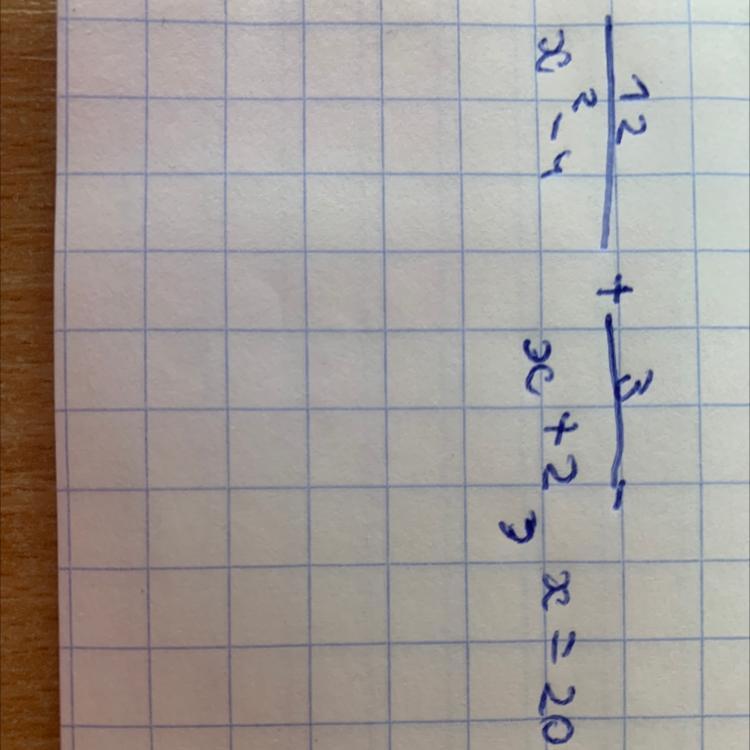 12/(x² - 4) + 3/(x + 2), x = 20